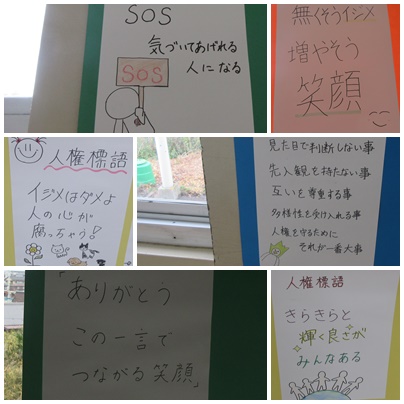 SOS
気づいてあげれる
人になる
SOS
無くそうイジメ
増やそう
笑顔
人権標語
イジメはダメよ
人の心が
腐っちゃう!
見た目で判断しない事
先入観を持たない事
互いを尊重する事
多様性を受け入れる事
人権を守るために
それが一番大事
「ありがとう
この一言で
つながる笑顔」
人権標語
きらきらと
輝く良さが
みんなある